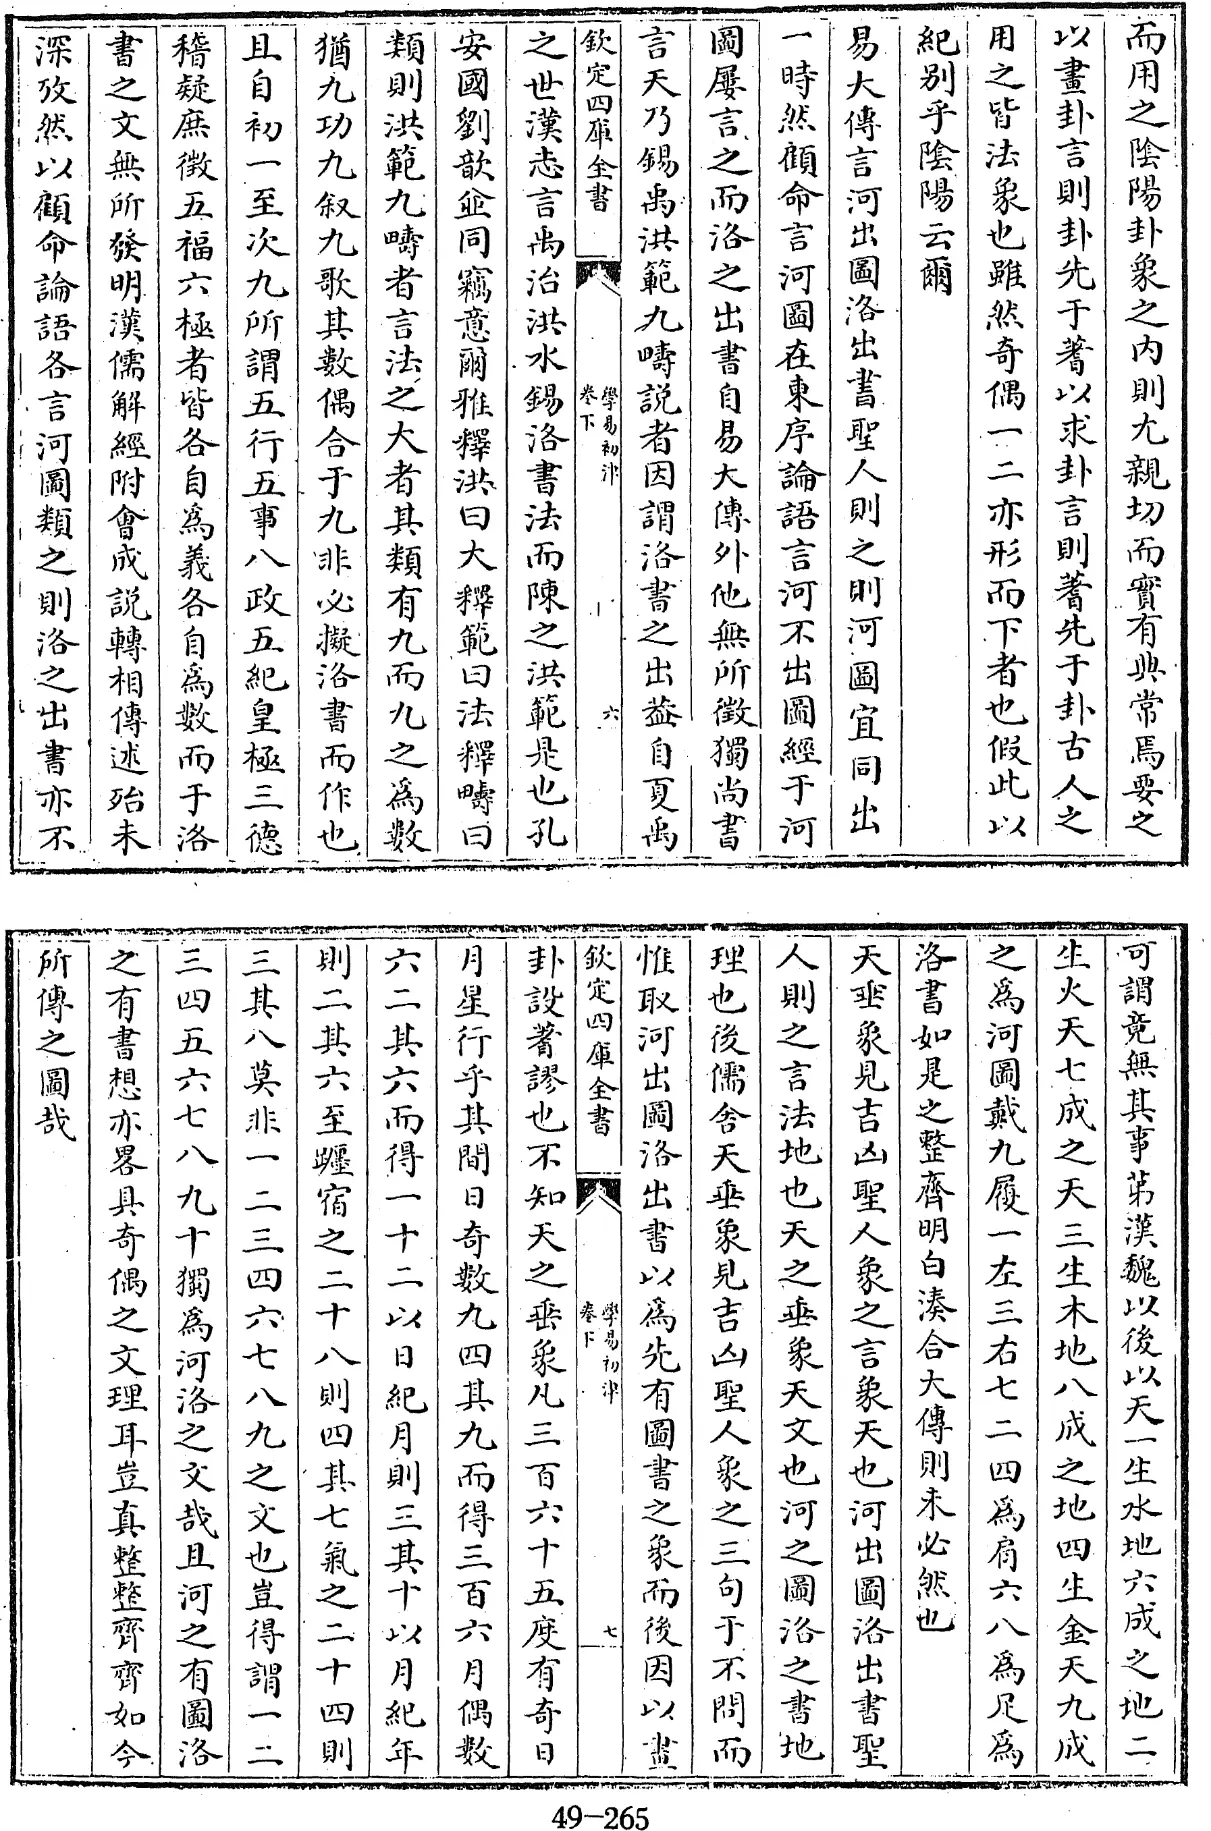 而用之陰陽卦象之内則尤親切而實有典常焉要之
以畫卦言則卦先于蓍以求卦言則蓍先于卦古人之
用之皆法象也雖然奇偶一二亦形而下者也假此以
紀别乎陰陽云爾
易大傳言河出圖洛出書聖人則之則河圖宜同出
一時然顧命言河圖在東序論語言河不出圖經于河
圖屡言之而洛之出書自易大傳外他無所徵獨尚書
言天乃錫禹洪範九疇説者因謂洛書之出葢自夏禹
欽定四庫全書
學易初津
卷下
六
之世漢志言禹治洪水錫洛書法而陳之洪範是也孔
安國劉歆並同竊意爾雅釋洪曰大釋範曰法釋疇曰
類則洪範九疇者言法之大者其類有九而九之為數
猶九功九叙九歌其數偶合于九非必擬洛書而作也
且自初一至次九所謂五行五事八政五紀皇極三德
稽疑庶徵五福六極者皆各自為義各自為數而于洛
書之文無所發明漢儒解經附會成説轉相傳述殆未
深攷然以顧命論語各言河圖類之則洛之出書亦不
可謂竟無其事苐漢魏以後以天一生水地六成之地二
生火天七成之天三生木地八成之地四生金天九成
之為河圖戴九履一左三右七二四為肩六八為足為
洛書如是之整齊明白湊合大傳則未必然也
天垂象見吉凶聖人象之言象天也河出圖洛出書聖
人則之言法地也天之垂象天文也河之圖洛之書地
理也後儒舍天垂象見吉凶聖人象之三句于不問而
惟取河出圖洛出書以為先有圖書之象而後因以畫
欽定四庫全書
學易初津
卷下
七
卦設蓍謬也不知天之垂象凡三百六十五度有奇日
月星行乎其間日奇數九四其九而得三百六月偶數
六二其六而得一十二以日紀月則三其十以月紀年
則二其六至躔宿之二十八則四其七氣之二十四則
三其八莫非一二三四六七八九之文也豈得謂一二
三四五六七八九十獨為河洛之文哉且河之有圖洛
之有書想亦畧具奇偶之文理耳豈真整整齊齊如今
所傳之圖哉
49-265